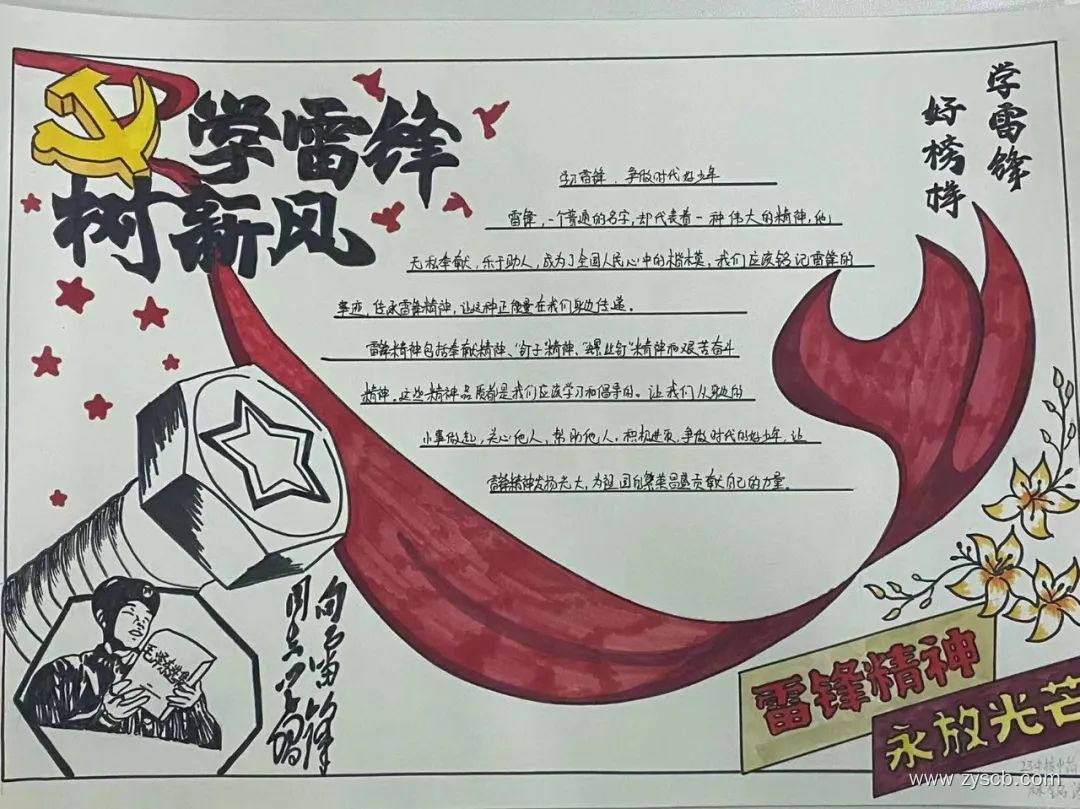 学雷锋
树新风
学雷锋
好榜样
学习雷锋，争做时代好少年
雷锋，一个普通的名字，却代表着一种伟大的精神，他
无私奉献，乐于助人，成为了全国人民心中的楷模，我们应该铭记雷锋的
事迹，传承雷锋精神，让这种正能量在我们身边传递。
雷锋精神包括奉献精神、“钉子”精神、“螺丝钉”精神和艰苦奋斗
精神。这些精神品质都是我们应该学习和倡导的。让我们从身边的
小事做起，关心他人，帮助他人，积极进取，争做时代的好少年，让
雷锋精神发扬光大，为祖国的繁荣昌盛贡献自己的力量。
向雷锋
同志学习
毛泽东
雷锋精神
永放光芒
www.zyscb.com